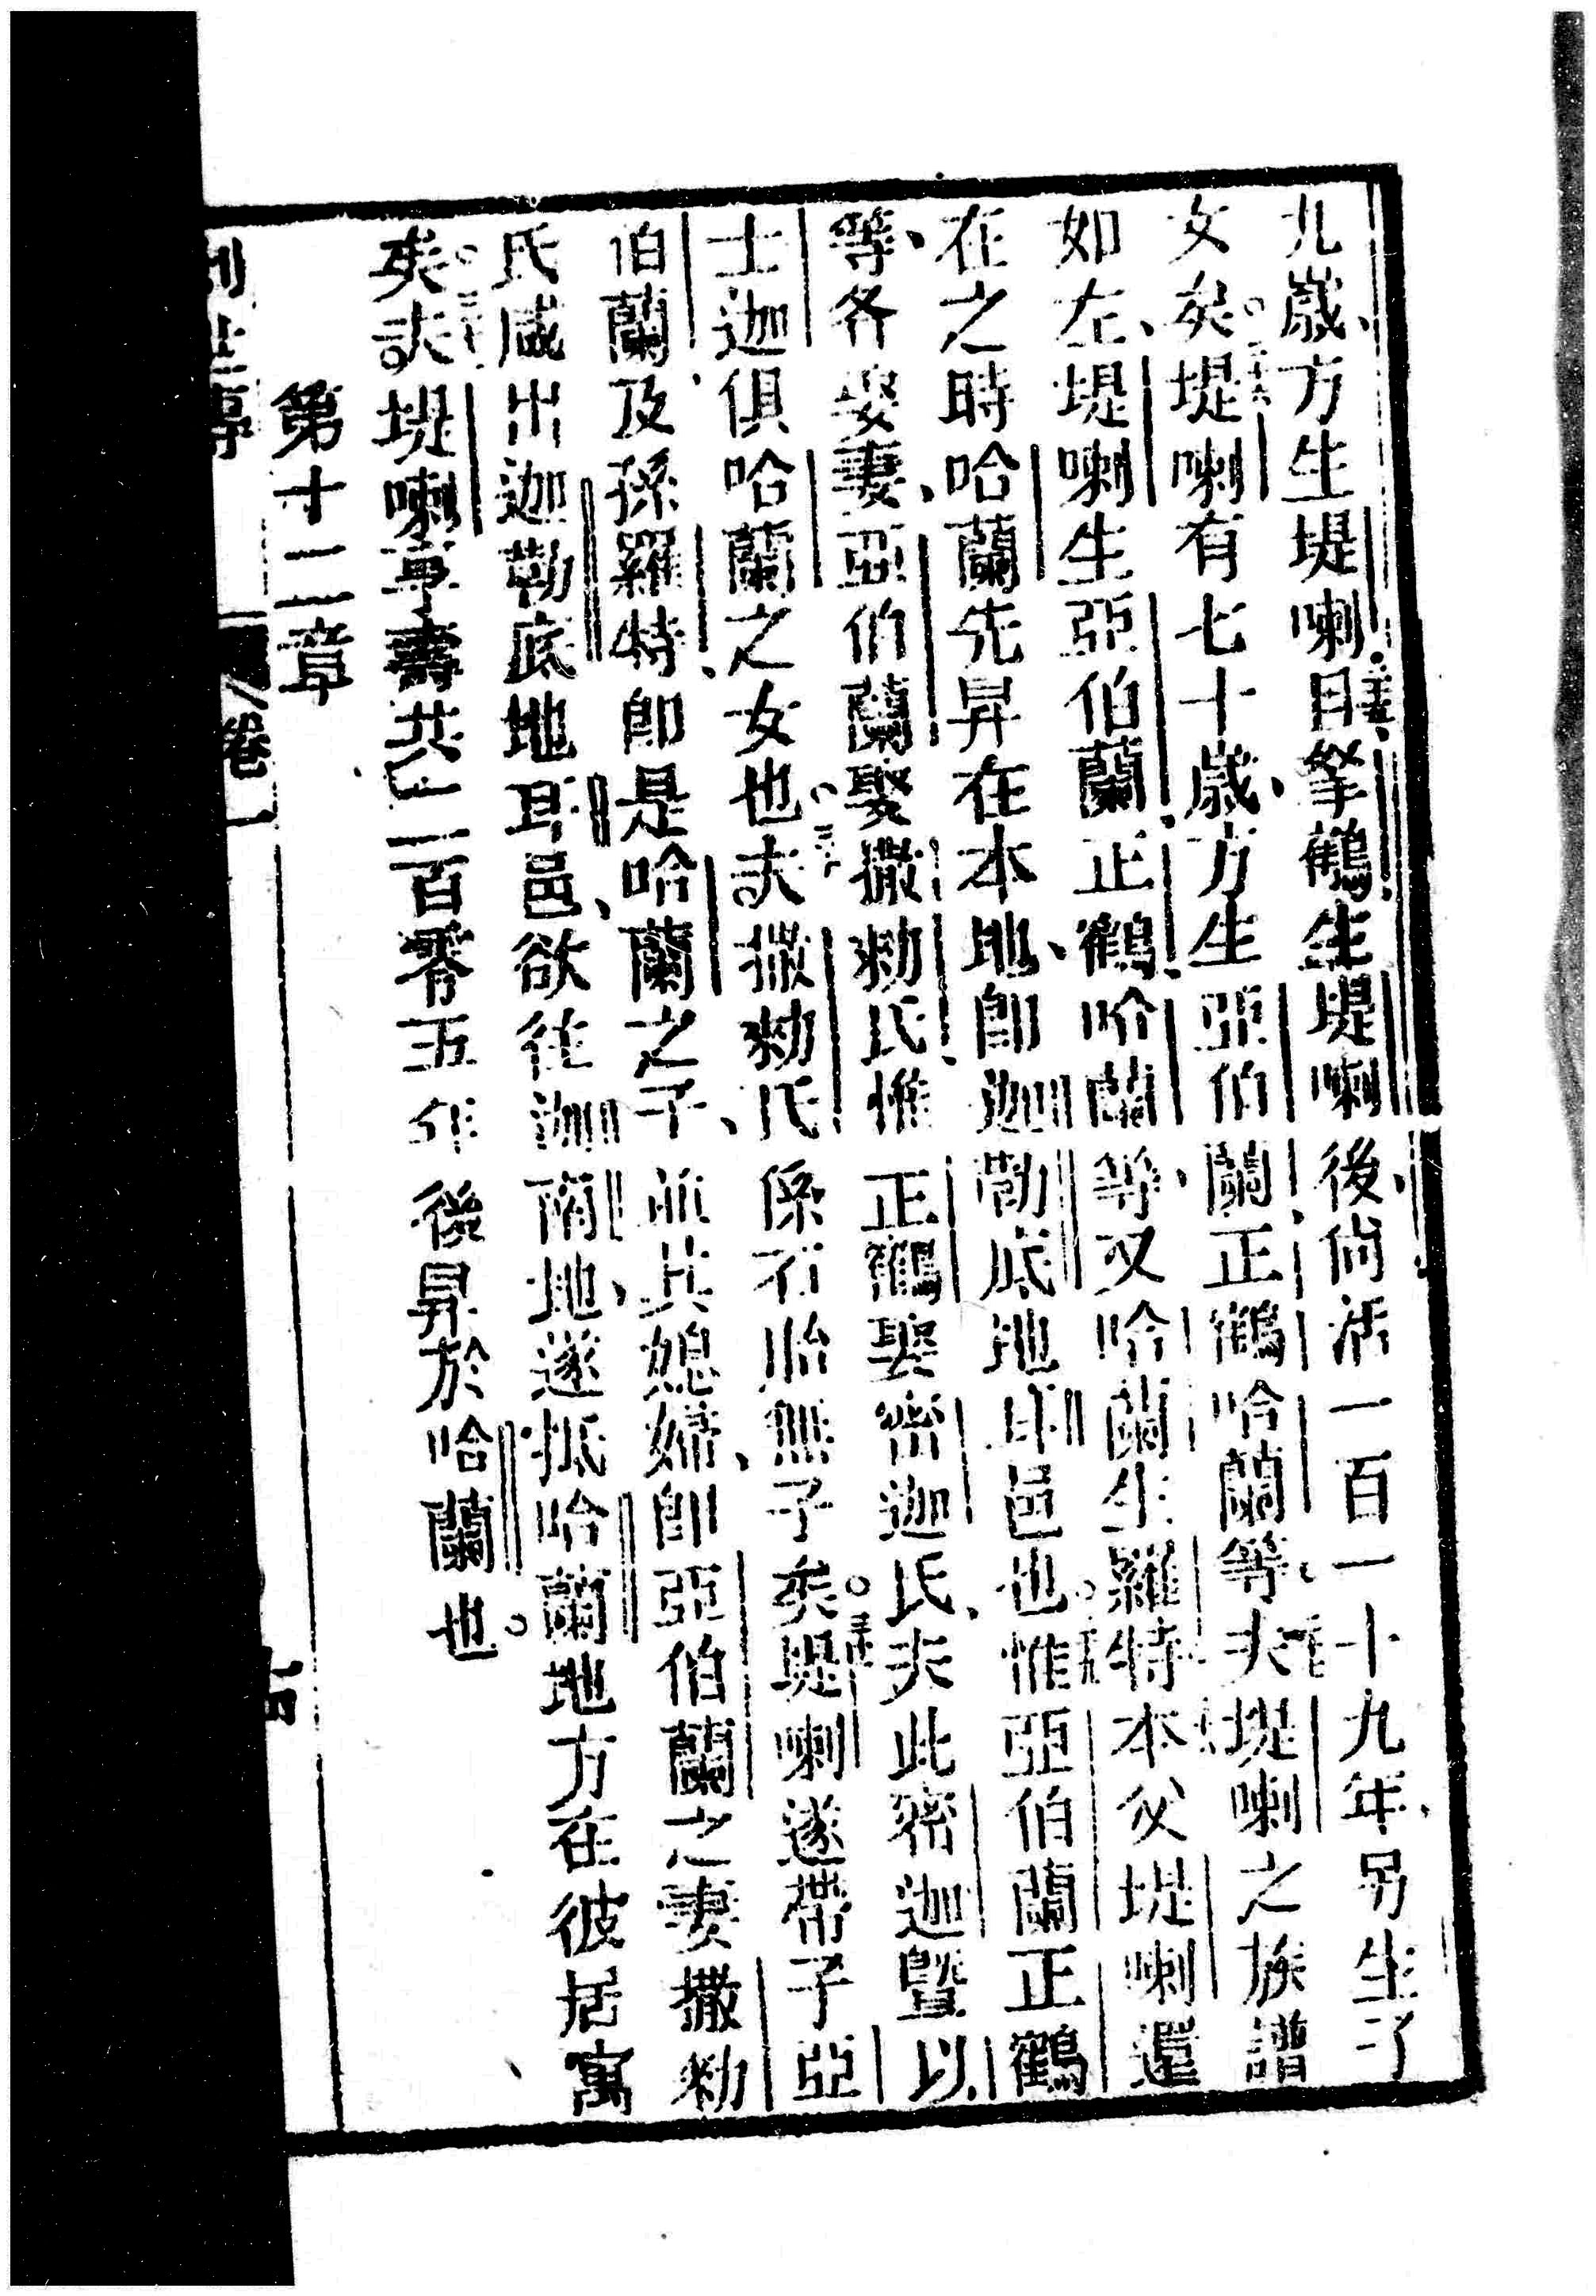 九歲、方生堤喇、目拏鶴生堤喇後、尚活一百一十九年、另生子
女矣。堤喇有七十歲、方生亞伯蘭、正鶴哈蘭等、夫堤喇之族譜
如左、堤喇生亞伯蘭、正鶴、哈蘭等、又哈蘭生羅特本父堤喇還
在之時哈蘭先昇在本地、即迦勒底地耳邑也。惟亞伯蘭正鶴
等、各娶妻、亞伯蘭娶撒勑氏、惟正鶴娶密迦氏、夫此密迦曁以
士迦俱哈蘭之女也。夫撒勑氏係不胎無子矣。堤喇遂帶子亞
伯蘭、及孫羅特、即是哈蘭之子、並其媳婦、即亞伯蘭之妻撒勑
氏咸出迦勒底地耳邑、欲往迦南地、遂抵哈蘭地方在彼居寓
矣。夫堤喇享壽共二百零五年後昇於哈蘭也。
第十二章
卷一